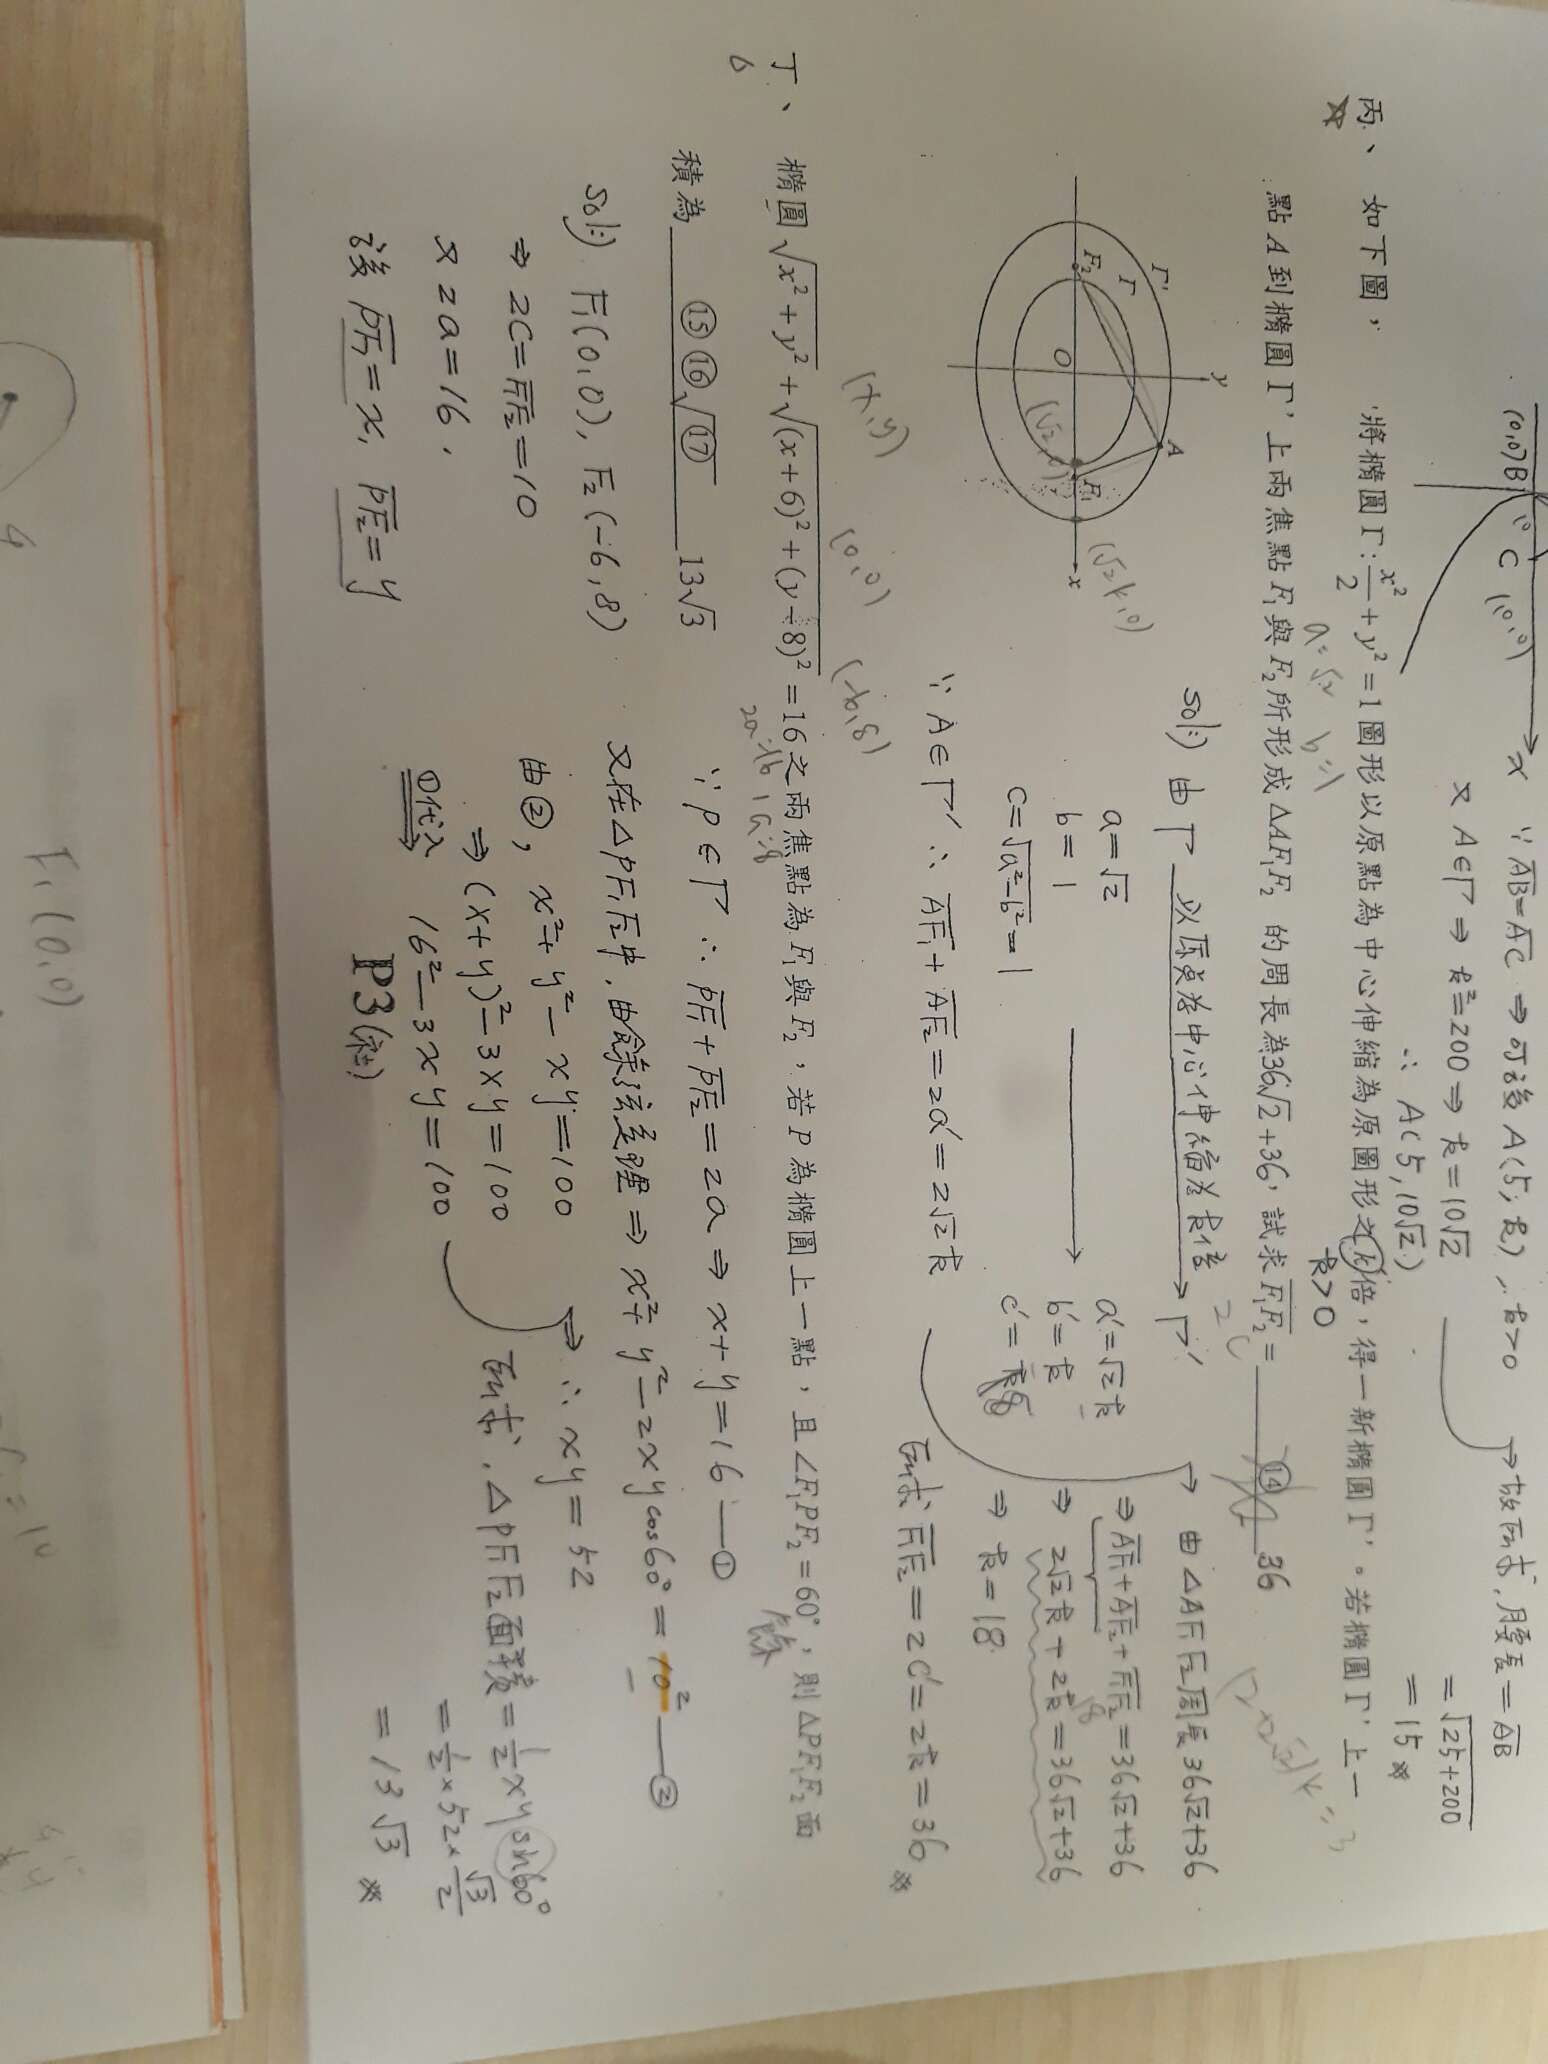 (0,0)B
C
(10,0)
x
∵ AB=AC ⇒ 可設 A(5, k), k>0
又 A∈Γ ⇒ k²=200 ⇒ k=10√2
∴ A(5, 10√2)
故所求, 腰長 = AB
= √25+200
= 15 ※
丙、 如下圖, 將橢圓Γ: x²/2 + y² = 1圖形以原點為中心伸縮為原圖形之k倍,得一新橢圓Γ'。若橢圓Γ'上一
a=√2 b=1
k>0
點A到橢圓Γ'上兩焦點F₁與F₂所形成ΔAF₁F₂的周長為36√2+36,試求F₁F₂ = ⑭ 36
2c
sol:) 由Γ 以原點為中心伸縮為k倍 → Γ'
a=√2
b=1
c=√a²-b²=1
a'=√2k
b'=k
c'=k
→ 由ΔAF₁F₂周長36√2+36
⇒ AF₁+AF₂+F₁F₂=36√2+36
⇒ 2√2k+2k=36√2+36
⇒ k=18
∵ A∈Γ' ∴ AF₁+AF₂=2a'=2√2k
所求 F₁F₂=2c'=2k=36 ※
y
Γ'
Γ
A
F₂
O
F₁
x
(√2k,0)
(x,y)
(0,0)
(-6,8)
丁、 橢圓√x²+y²+√(x+6)²+(y-8)²=16之兩焦點為F₁與F₂,若P為橢圓上一點,且∠F₁PF₂=60°,則ΔPF₁F₂面
6
2a=16, a=8
餘
積為 ⑮⑯√⑰ 13√3
sol:) F₁(0,0), F₂(-6,8)
⇒ 2c=F₁F₂=10
又 2a=16,
設 PF₁=x, PF₂=y
∵ P∈Γ ∴ PF₁+PF₂=2a ⇒ x+y=16 —①
又在ΔPF₁F₂中,由餘弦定理 ⇒ x²+y²-2xycos60°=10² —②
由②, x²+y²-xy=100
⇒ (x+y)²-3xy=100
①代入 16²-3xy=100
⇒ ∴ xy=52
所求, ΔPF₁F₂面積=1/2 xysin60°
=1/2×52×√3/2
=13√3 ※
P3(社)
F₁(0,0)